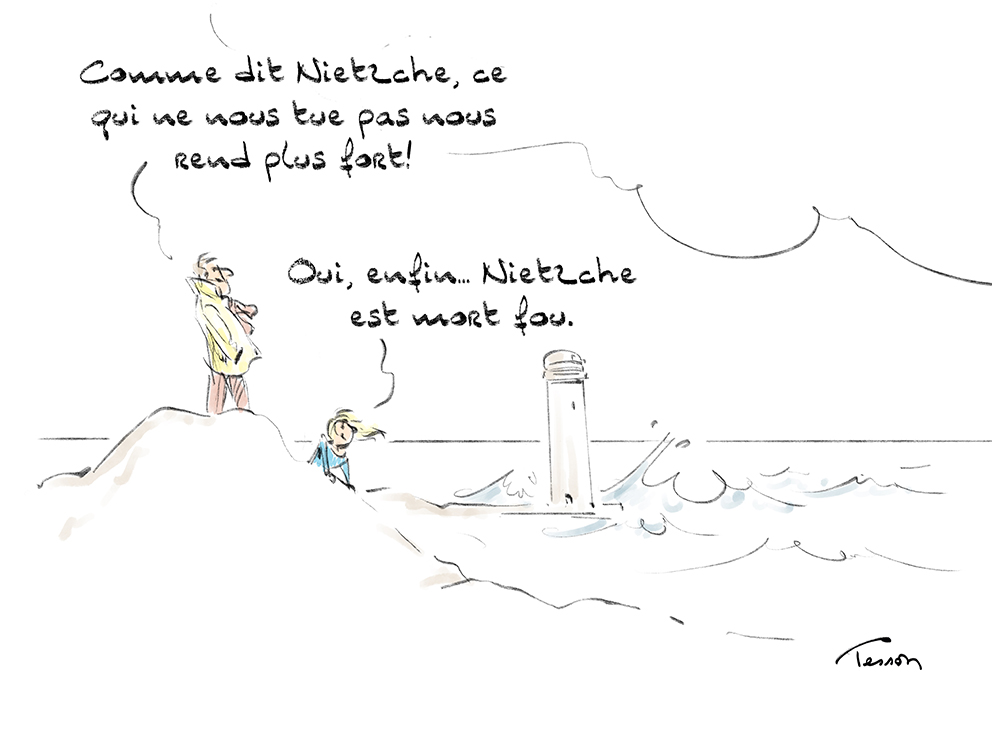 Comme dit Nietzche, ce
qui ne nous tue pas nous
rend plus fort!
Oui, enfin... Nietzche
est mort fou.
Tesson